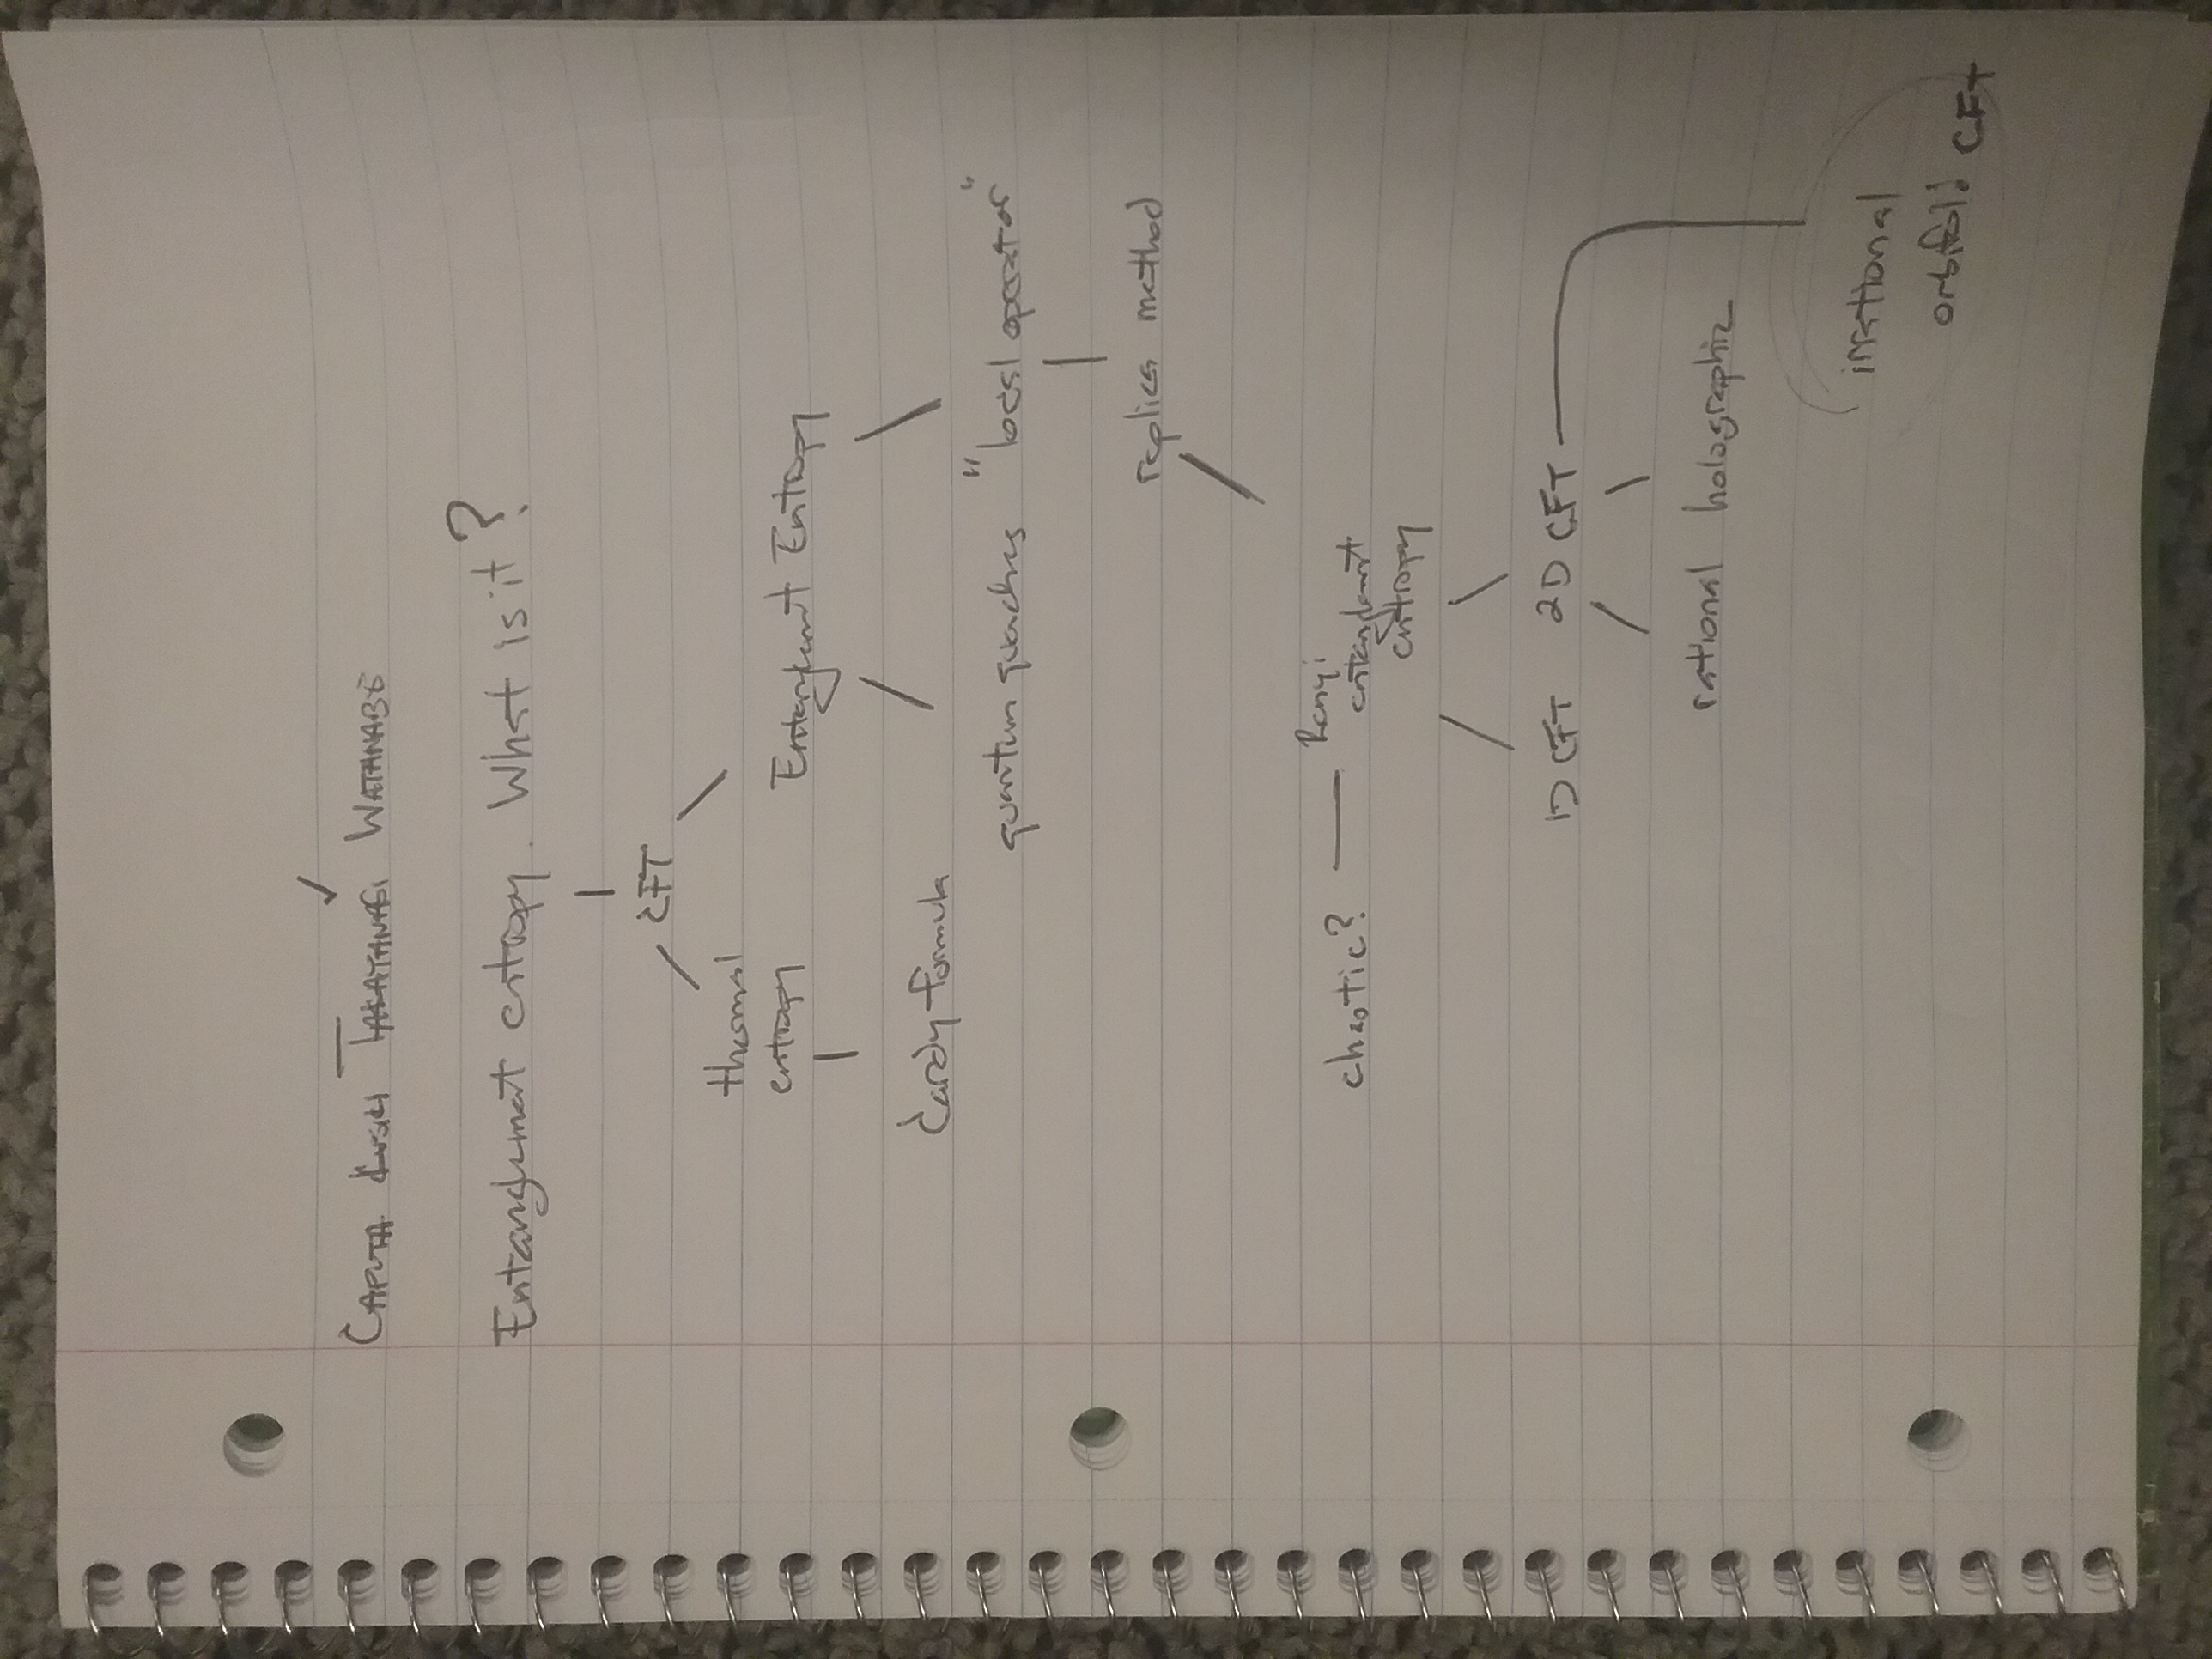 CAPUTA KUSUKI TAKAYANAGI WATANABE
Entanglement entropy. What is it?
CFT
thermal
entropy
Entanglement Entropy
Cardy formula
quantum quenches "local operator"
replica method
chaotic?
Renyi
entanglement
entropy
1D CFT 2D CFT
rational holographic
irrational
orbifold CFT